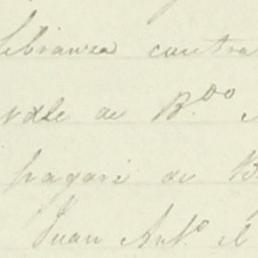 libranza contra
vale de B.do
pagaré de B
Juan Ant.o el